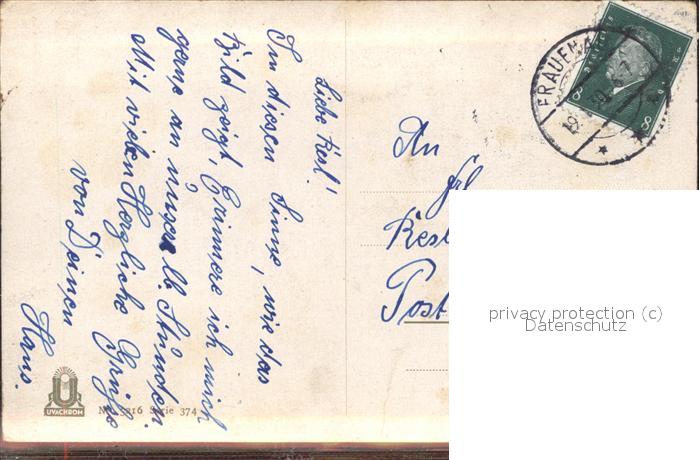 Liebe Resl!
In diesen Sinne, wie das
Bild zeigt, Erinnere ich mich
gerne an unsere lb. Stunden.
Mit vielen Herzliche Grüße
von Deinen
Hans.
An
Frl.
Resl
Post
FRAUENA
8
8
UVACHROM
Nr. 5216 Serie 374
privacy protection (c)
Datenschutz